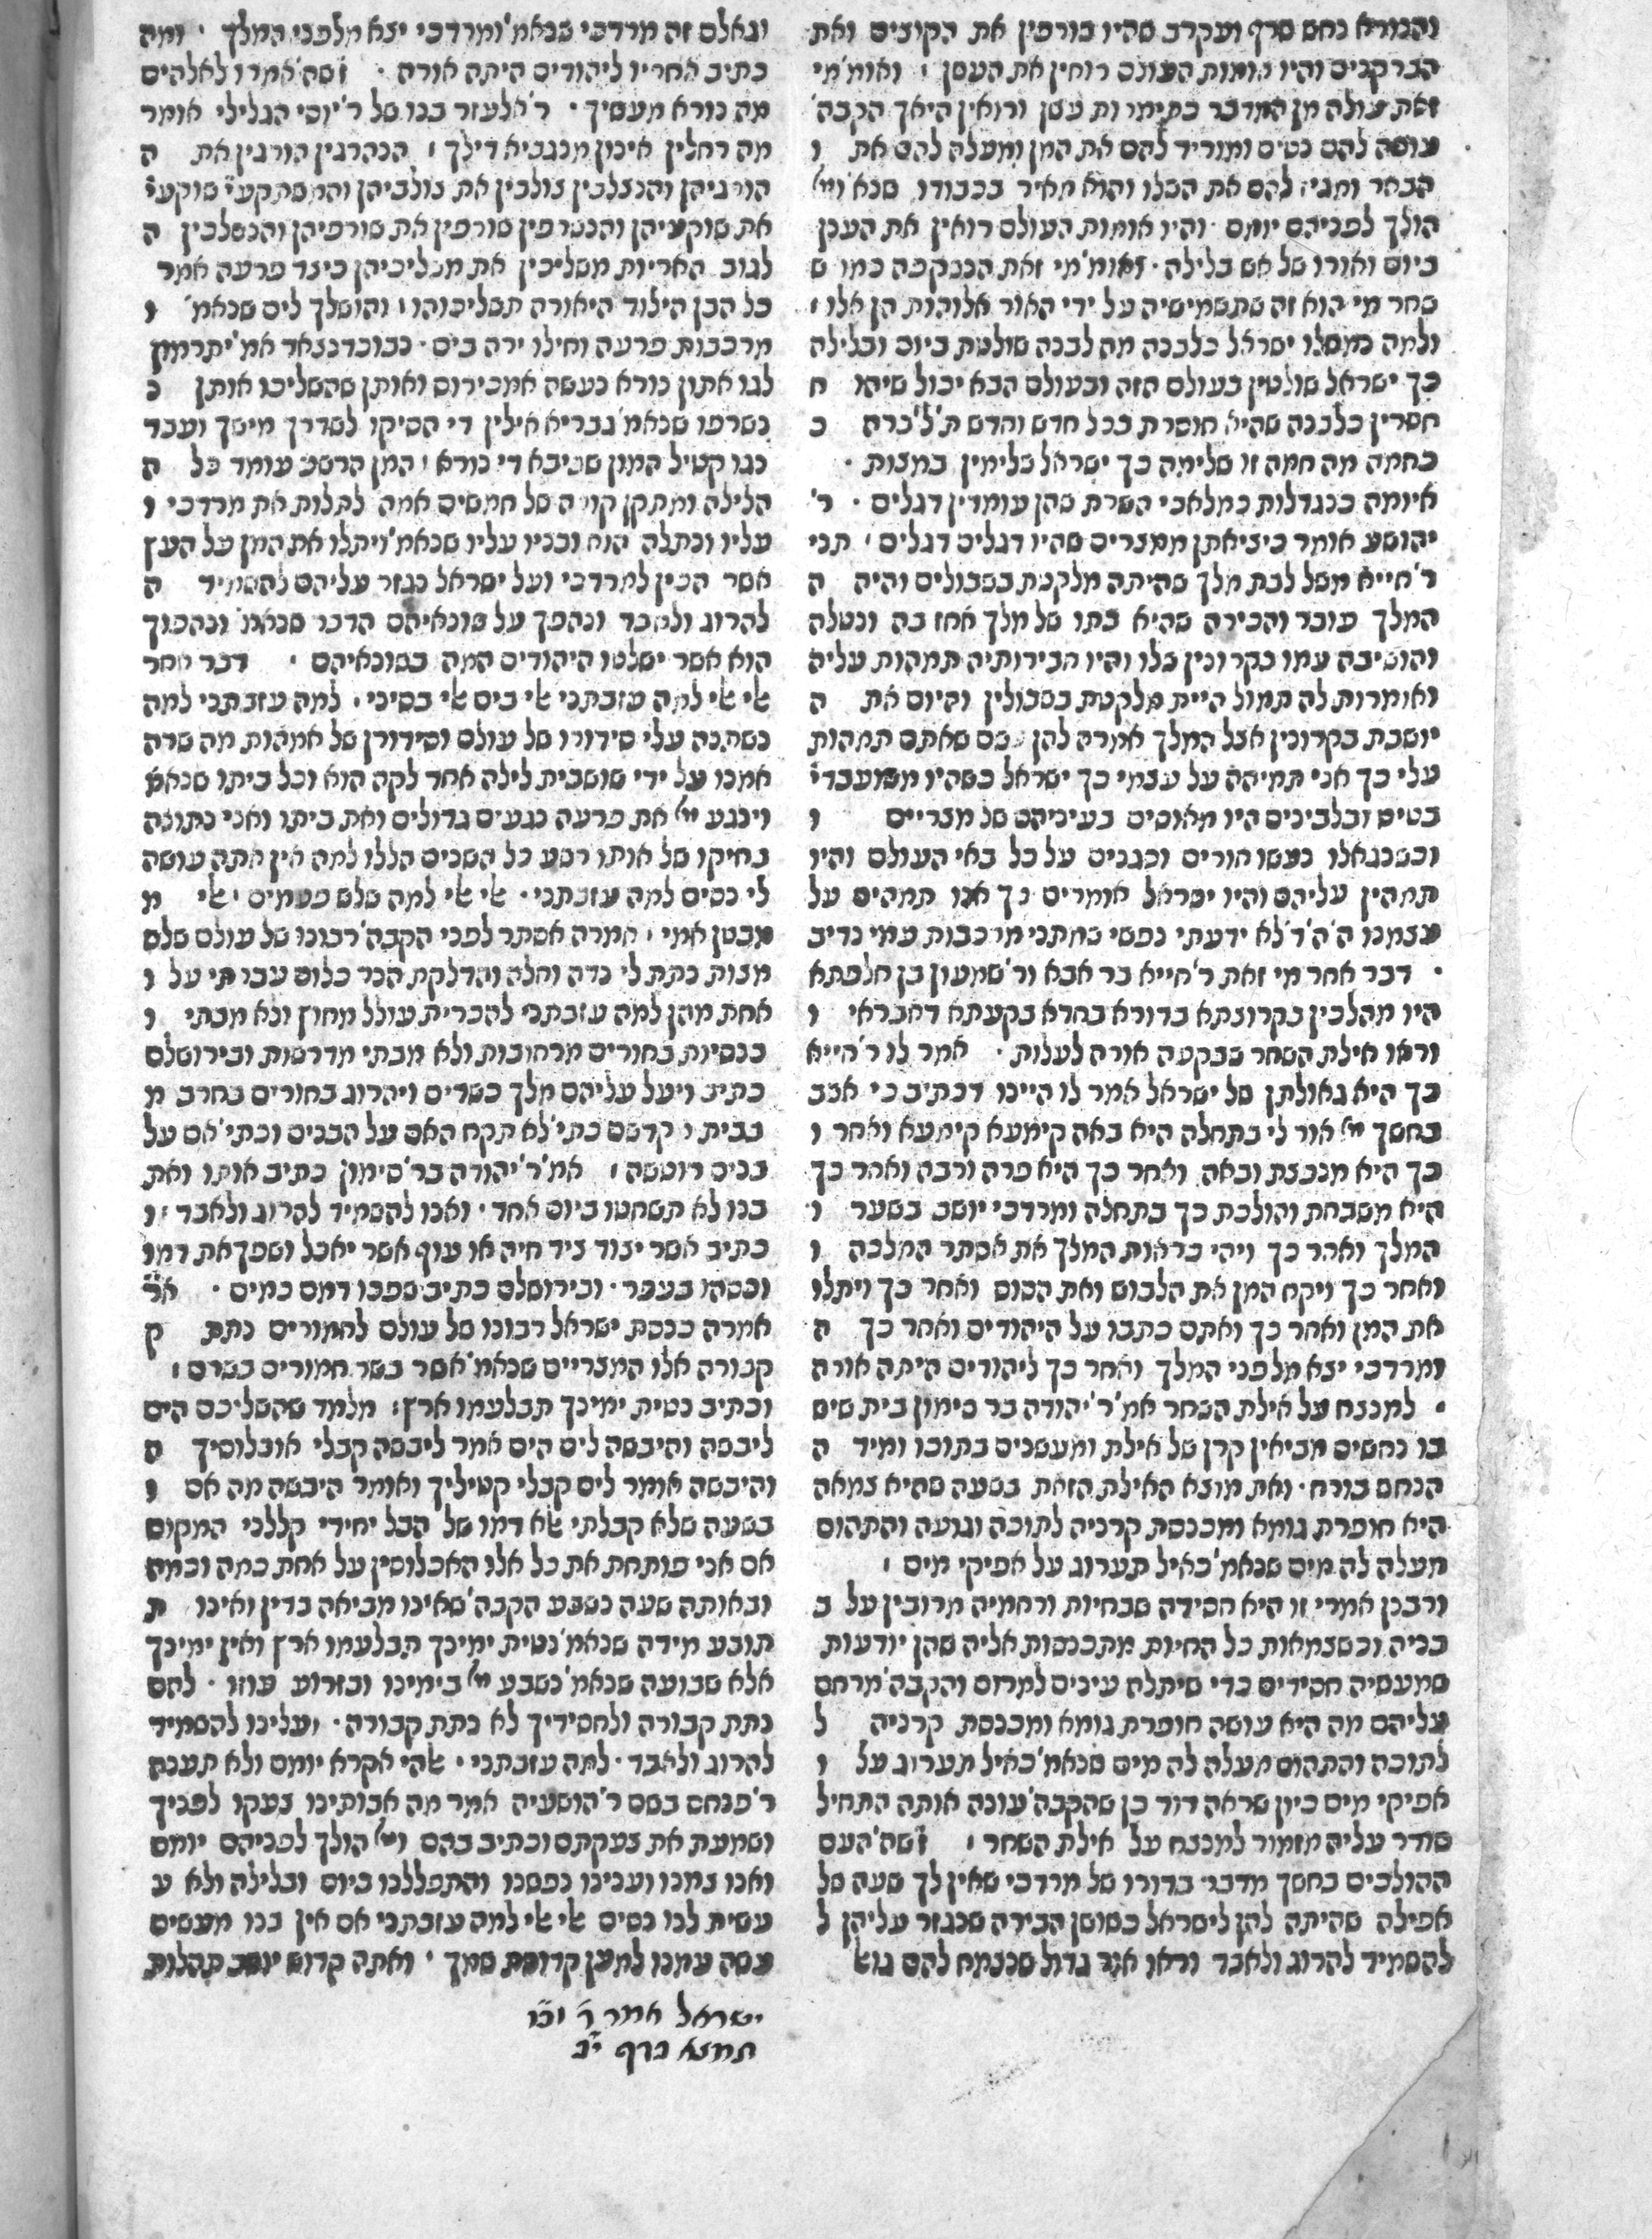 והנורא נחש שרף ועקרב שהיו שורפין את הקוצים ואת
הברקנים והיו אומות העולם רואין את העשן ׃ ואומ' מי
זאת עולה מן המדבר כתימרות עשן ורואין היאך הקבה'
עושה להם נסים ומוריד להם את המן ומעלה להם את ו
הבאר ומגיז להם את השלו והוא מאיר בכבודו שנא' ויי'
הולך לפניהם יומם ׳ והיו אומות העולם רואין את הענן
ביום ואורו של אש בלילה ׳ ואומ' מי זאת הנשקפה כמו ש
שחר מי הוא זה שתשמישיה על ידי האור אלוהות הן אלו ׃
ולמה נמשלו ישראל כלבנה מה לבנה שולטת ביום ובלילה
כך ישראל שולטין בעולם הזה ובעולם הבא יכול שיהו ח
חסרין כלבנה שהיא חוסרת בכל חדש וחדש ת'ל' ברה כ
כחמה מה חמה זו שלימה כך ישראל שלימין במצות ׳
איומה כנגדלות כמלאכי השרת שהן עומדין דגלים ׳ ר'
יהושע אומר ביציאתן ממצרים שהיו דגלים דגלים ׃ תני
ר' חייא משל לבת מלך שהיתה מלקטת בשבולים והיה ה
המלך עובר והכירה שהיא בתו של מלך אחז בה ונטלה
והושיבה עמו בקרונין שלו והיו חבירותיה תמהות עליה
ואומרות לה תמול היית מלקטת בשבולין והיום את ה
יושבת בקרונין אצל המלך אמרה להן כשם שאתם תמהות
עלי כך אני תמיהה על עצמי כך ישראל כשהיו משועבדי'
בטיט ובלבינים היו מאוסים בעיניהם של מצריים ו
וכשנגאלו נעשו חורים וסגנים על כל באי העולם והיו
תמהין עליהם והיו ישראל אומרים כך אנו תמהים על
עצמנו ה'ה'ד' לא ידעתי נפשי שמתני מרכבות עמי נדיב
׳ דבר אחר מי זאת ר' חייא בר אבא ור' שמעון בן חלפתא
היו מהלכין בקרוצתא בדורא בחדא בקעתא דחבראי ו
וראו אילת השחר שבקעה אורה לעלות ׳ אמר לו ר' חייא
כך היא גאולתן של ישראל אמר לו היינו דכתיב כי אשב
בחשך יי' אור לי בתחלה היא באה קימעא קימעא ואחר ו
כך היא מנצנצת ובאה ואחר כך היא פרה ורבה ואחר כך
היא משבחת והולכת כך בתחלה ומרדכי יושב בשער ו
המלך ואחר כך ויהי כראות המלך את אסתר המלכה ו
ואחר כך ויקח המן את הלבוש ואת הסוס ואחר כך ויתלו
את המן ואחר כך ואתם כתבו על היהודים ואחר כך ה
ומרדכי יצא מלפני המלך ואחר כך ליהודים היתה אורה
׳ למנצח על אילת השחר אמ'ר' יהודה בר סימון בית שיש
בו נחשים מביאין קרן של אילת ומעשנים בתוכו ומיד ה
הנחש בורח ׳ ואת מוצא האילת הזאת בשעה שהיא צמאה
היא חופרת גומא ומכנסת קרניה לתוכה וגועה והתהום
מעלה לה מים שנאמ' כאיל תערוג על אפיקי מים ׃
ורבנן אמרי זו היא חסידה שבחיות ורחמיה מרובין על ב
בניה וכשצמאות כל החיות מתכנסות אליה שהן יודעות
שמעשיה חסידים כדי שיתלה עינים למרום והקבה' מרחם
עליהם מה היא עושה חופרת גומא ומכנסת קרניה ל
לתוכה והתהום מעלה לה מים שנאמ' כאיל תערוג על ו
אפיקי מים כיון שראה דוד כן שהקבה' עונה אותה התחיל
סודר עליה מזמור למנצח על אילת השחר ׃ זשה' העם
ההולכים בחשך מדבר בדורו של מרדכי שאין לך שעה של
אפילה שהיתה להן לישראל כשושן הבירה שנגזר עליהן ל
להשמיד להרוג ולאבד וראו אור גדול שנצמח להם גוש'
ונאלם זה מרדכי שנאמ' ומרדכי יצא מלפני המלך ׳ ומה
כתיב אחריו ליהודים היתה אורה ׳ זשה' אמרו לאלהים
מה נורא מעשיך ׳ ר' אלעזר בנו של ר' יוסי הגלילי אומר
מה דחלין אינון מנגביא דילך ׃ הנהרגין הורגין את ה
הורגיהן והנצלבין צולבין את צולביהן והמשתקעי' שוקעי'
את שוקעיהן והנשרפין שורפין את שורפיהן והנשלכין ה
לגוב האריות משליכין את משליכיהן כיצד פרעה אמר
כל הבן הילוד היאורה תשליכוהו ׃ והושלך לים שנאמ' ו
מרכבות פרעה וחילו ירה בים ׳ נבוכדנצאר אמ' יתרמון
לגו אתון נורא נעשה אמכירום ואותן שהשליכו אותן נ
נשרפו שנאמ' גבריא אילין די הסיקו לשדרך מישך ועבד
נגו קטיל המון שביבא די נורא ׃ המן הרשע עומד כל ה
הלילה ומתקן קורה של חמשים אמה לתלות את מרדכי ו
עליו ונתלה הוא ובניו עליו שנאמ' ויתלו את המן על העץ
אשר הכין למרדכי ועל ישראל נגזר עליהם להשמיד ה
להרוג ולאבד ונהפך על שונאיהם הדבר שנאמ' ונהפוך
הוא אשר ישלטו היהודים המה בשונאיהם ׃ דבר אחר
אלי אלי למה עזבתני אלי בים אלי בסיני ׃ למה עזבתני למה
נשתנה עלי סידורו של עולם וסידורן של אמהות מה שרה
אמנו על ידי שנשבית לילה אחד לקה הוא וכל ביתו שנאמ'
וינגע יי' את פרעה נגעים גדולים ואת ביתו ואני נתונה
בחיקו של אותו רשע כל השנים הללו למה אין אתה עושה
לי נסים למה עזבתני ׳ אלי אלי למה שלש פעמים ׃ אלי מ
מבטן אמי ׃ אמרה אסתר לפני הקבה' רבונו של עולם שלש
מצות נתת לי נדה וחלה והדלקת הנר כלום עברתי על ו
אחת מהן למה עזבתני להכרית עולל מחוץ ולא מבתי ו
כנסיות בחורים מרחובות ולא מבתי מדרשות ובירושלם
כתיב ויעל עליהם מלך כשדים ויהרוג בחורים בחרב מ
בבית ׃ קדשם כתי' לא תקח האם על הבנים וכתי' אם על
בנים רוטשה ׃ אמ'ר' יהודה בר' סימון כתיב אותו ואת
בנו לא תשחטו ביום אחד ׳ ואנו להשמיד להרוג ולאבד ׃ ו
כתיב אשר יצוד ציד חיה או עוף אשר יאכל ושפך את דמו
וכסהו בעפר ׳ ובירושלם כתיב שפכו דמם כמים ׳ א'ר'
אמרה כנסת ישראל רבונו של עולם לחמורים נתת ק
קבורה אלו המצריים שנאמ' אשר בשר חמורים בשרם ׃
וכתיב נטית ימינך תבלעמו ארץ ׃ מלמד שהשליכם הים
ליבשה והיבשה לים הים אמר ליבשה קבלי אוכלוסיך ה
והיבשה אומר לים קבלי קטיליך ואומר היבשה מה אם ו
בשעה שלא קבלתי אלא דמו של הבל יחידי קללני המקום
אם אני פותחת את כל אלו האכלוסין על אחת כמה וכמה
ובאותה שעה נשבע הקבה' שאינו מביאה בדין ואינו ת
תובע מידה שנאמ' נטית ימינך תבלעמו ארץ ואין ימינך
אלא שבועה שנאמ' נשבע יי' בימינו ובזרוע עוזו ׳ להם
נתת קבורה ולחסידיך לא נתת קבורה ׳ ועלינו להשמיד
להרוג ולאבד ׳ למה עזבתני ׳ אלהי אקרא יומם ולא תענה
ר' פנחס בשם ר' הושעיה אמר מה אבותינו צעקו לפניך
ושמעת את צעקתם וכתיב בהם ויי' הולך לפניהם יומם
ואנו צמנו וענינו נפשנו והתפללנו ביום ובלילה ולא ע
עשית לנו נסים אלי אלי למה עזבתני אם אין בנו מעשים
עשה עמנו למען קדושת שמך ׃ ואתה קדוש יושב תהלות
ישראל אמר ר' וכו'
תמצא בדף י"ב